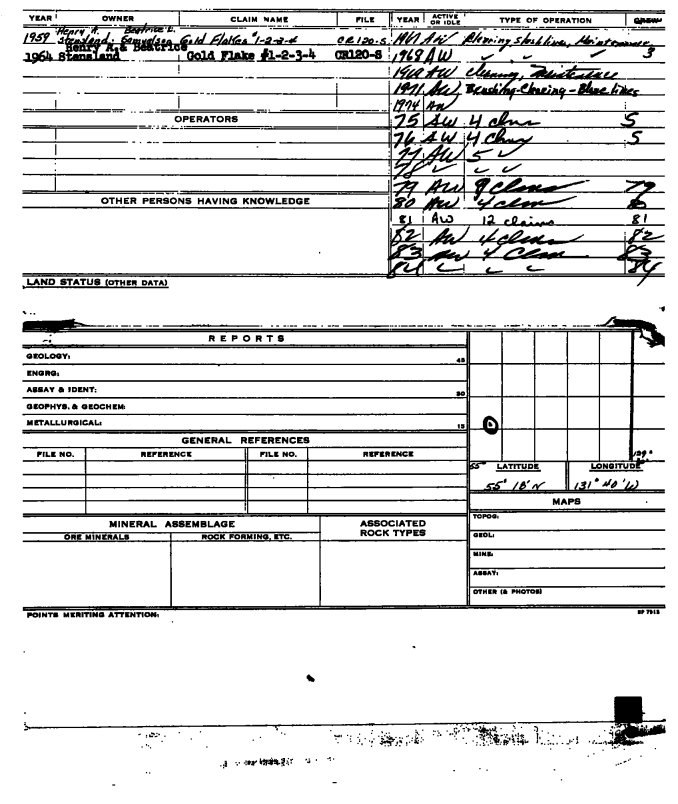 YEAR OWNER CLAIM NAME FILE YEAR ACTIVE OR IDLE TYPE OF OPERATION
1959 Henry A. Stensland Beatrice L. Samuelson Gold Flakes #1-2-3-4 CR120-S
1964 Henry A. & Beatrice Stensland Gold Flake #1-2-3-4 CR120-S
1967 AW slashline, Maintenance 3
1968 AW ✓ ✓ ✓
1969 AW Clearing, Maintenance
1971 AW Brushing-Clearing-Blaze lines
1974 AW
OPERATORS
75 AW 4 5
76 AW 4 5
77 AW 5 ✓
78 ✓ ✓ ✓
79 AW 9 Clms 79
OTHER PERSONS HAVING KNOWLEDGE
80 AW 4 clms 80
81 AW 12 claims 81
82 AW 4 clms 82
83 AW 4 Clms 83
84 ✓ ✓ ✓ 84
LAND STATUS (OTHER DATA)
REPORTS
GEOLOGY: 45
ENGRG:
ASSAY & IDENT: 30
GEOPHYS. & GEOCHEM:
METALLURGICAL: 15
GENERAL REFERENCES
FILE NO. REFERENCE FILE NO. REFERENCE
55° LATITUDE LONGITUDE
55° 18' N 131° 40' W
MAPS
TOPOG:
GEOL:
MINE:
ASSAY:
OTHER (& PHOTOS)
MINERAL ASSEMBLAGE
ORE MINERALS ROCK FORMING, ETC.
ASSOCIATED ROCK TYPES
POINTS MERITING ATTENTION: